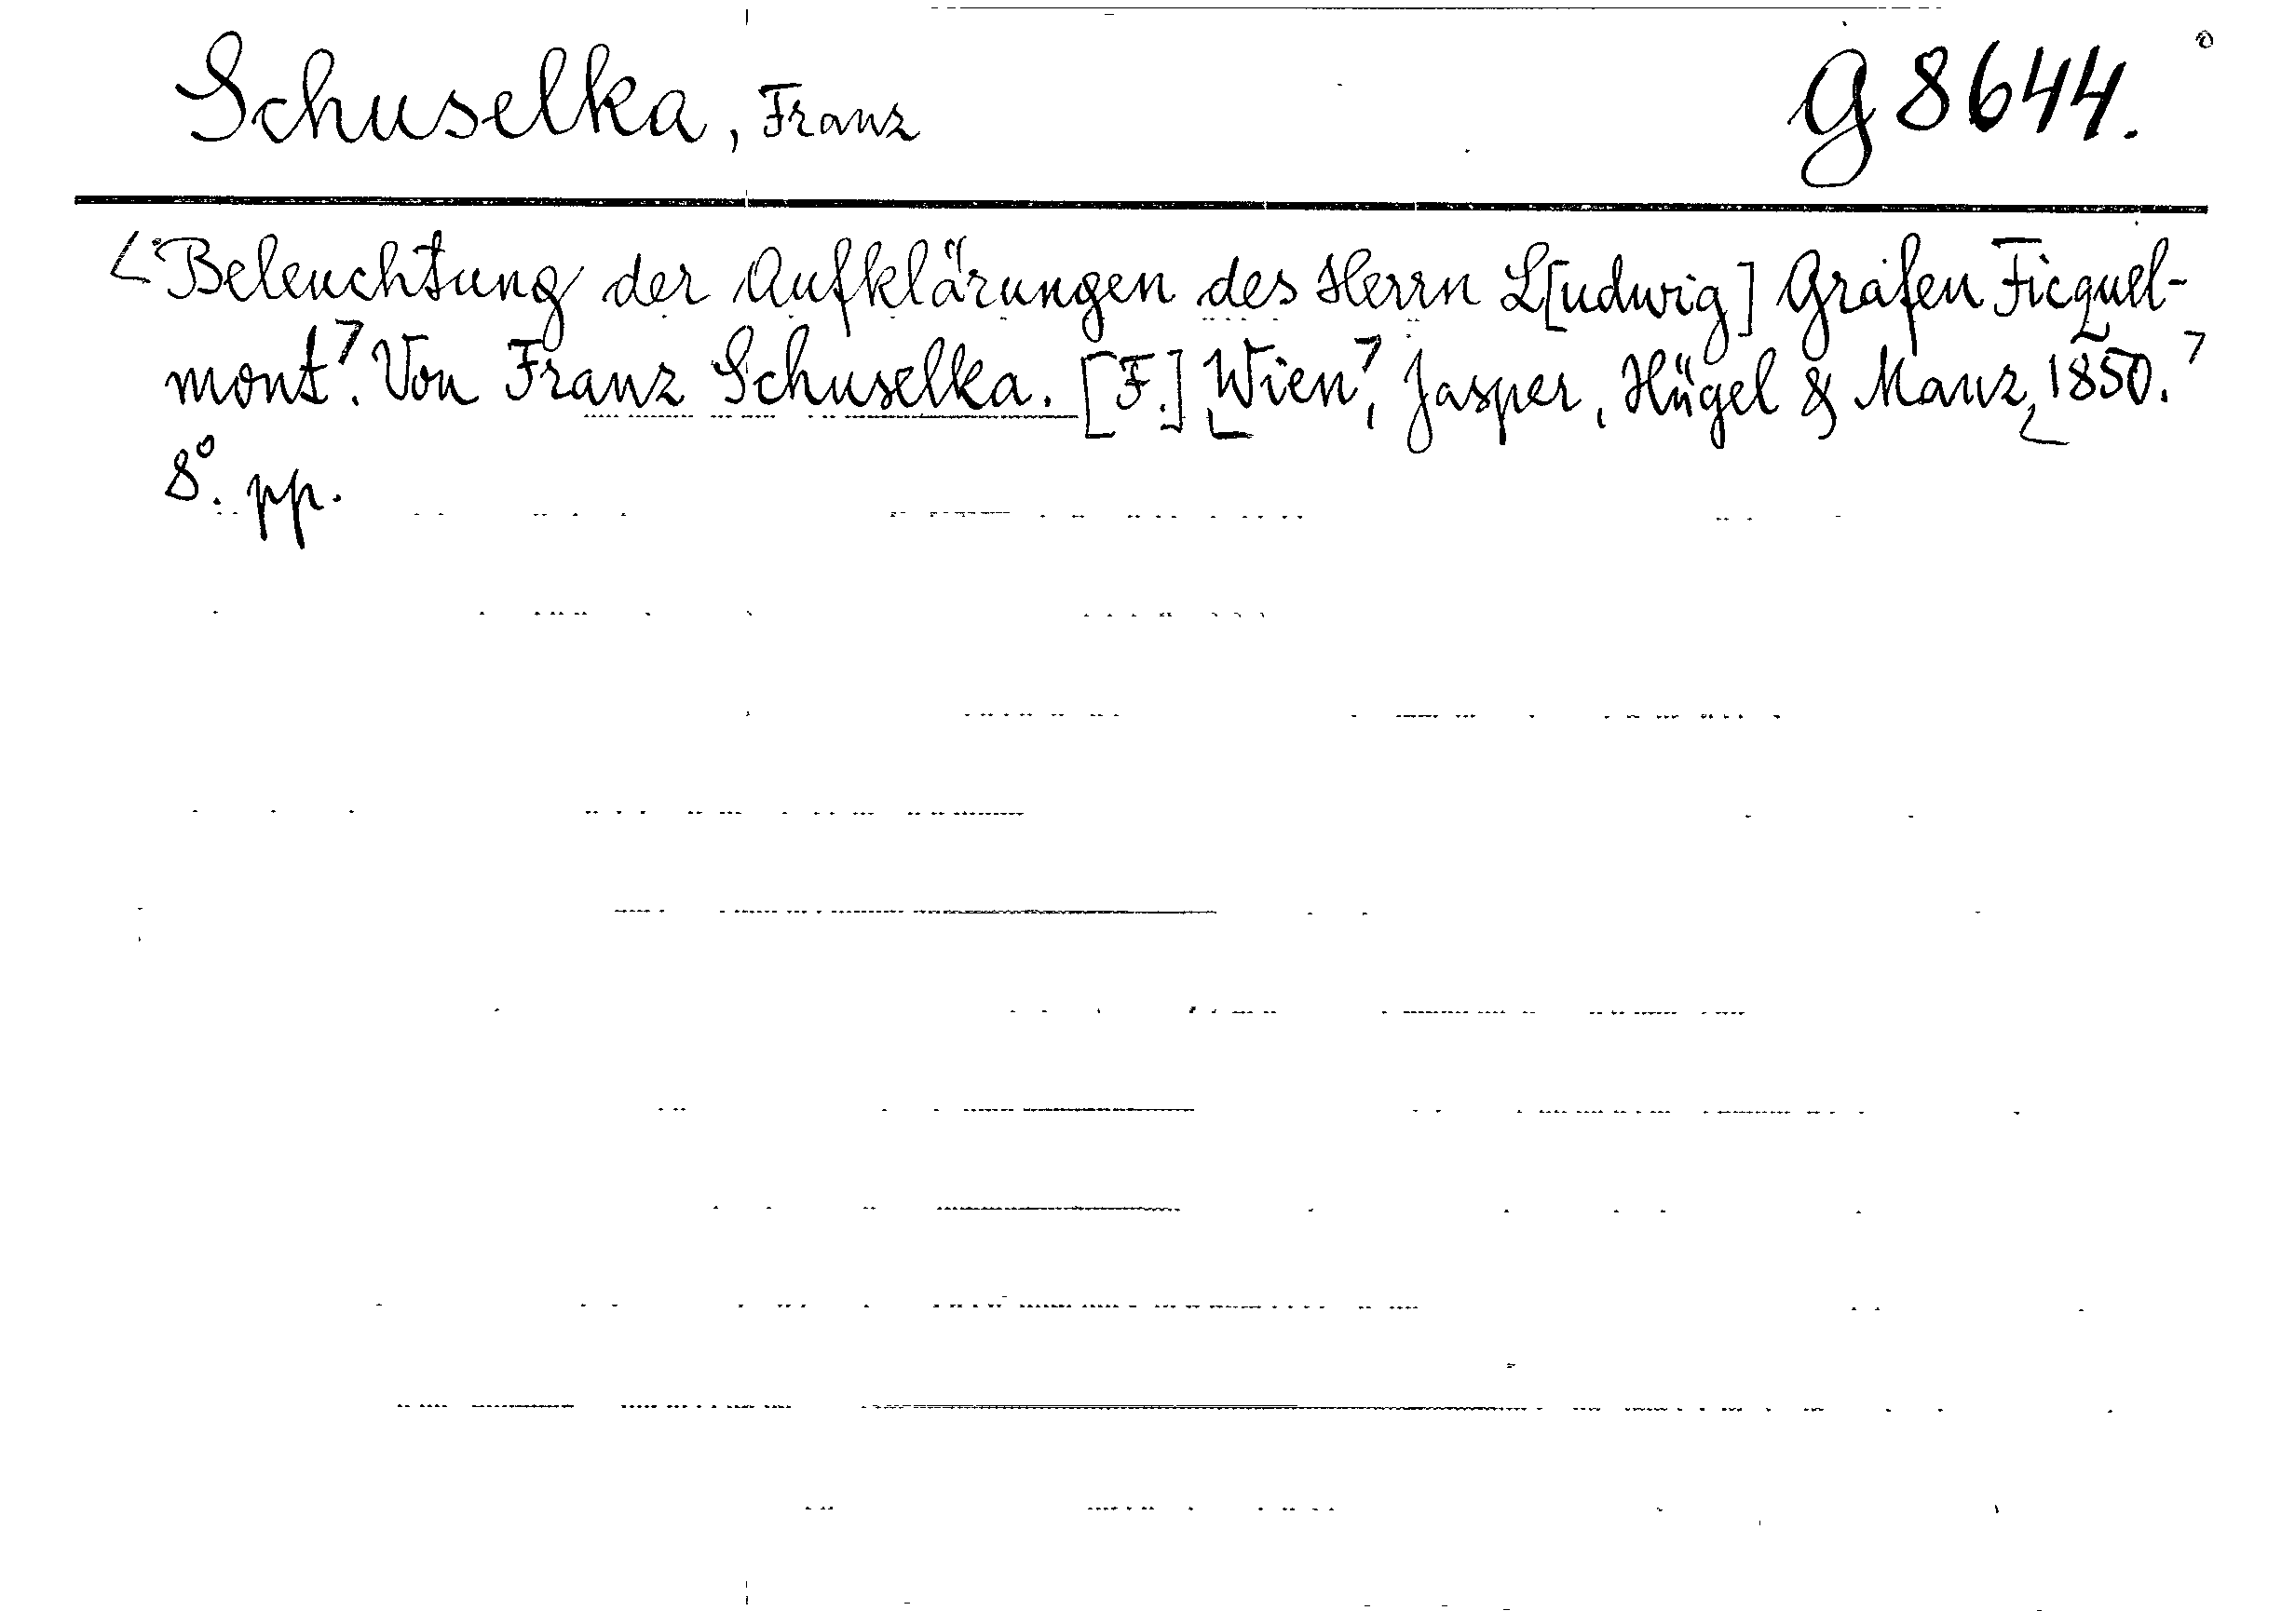 Schuselka, Franz G 8644.
Beleuchtung der Aufklärungen des Herrn L[udwig] Grafen Ficquel-
mont. Von Franz Schuselka. [F.] Wien, Jasper, Hügel & Manz, 1850.
8°. pp.